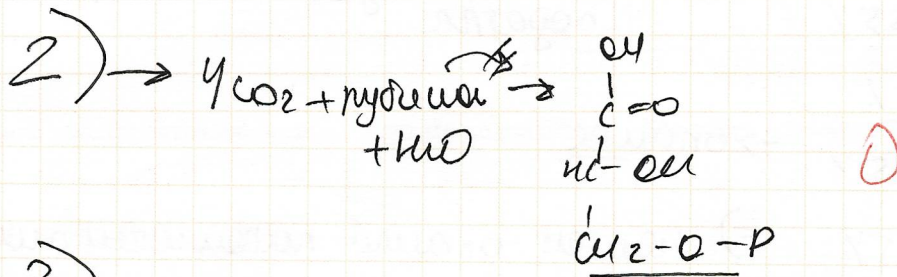 2) → 4CO2 + рубиша →
+ H2O
OH
C=O
HC-OH
CH2-O-P